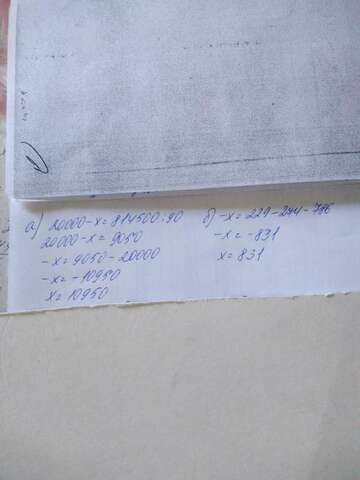 а) 20000-x=814500:90
20000-x=9050
-x=9050-20000
-x=-10950
x=10950
б) -x=
-x=-831
x=831